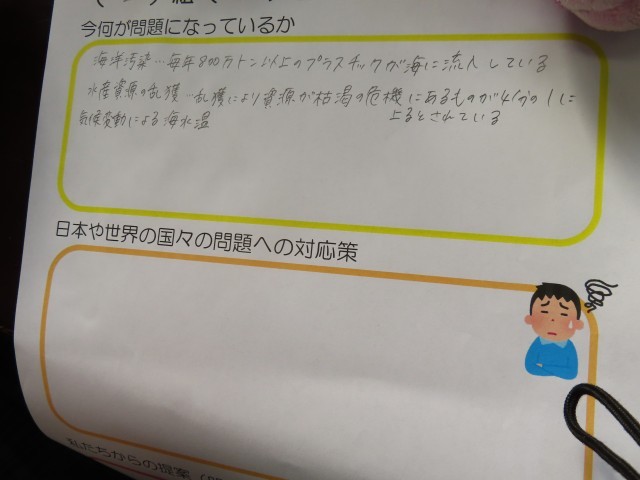 今何が問題になっているか
海洋汚染…毎年800万トン以上のプラスチックが海に流入している
水産資源の乱獲…乱獲により資源が枯渇の危機にあるものが4分の1に
上るとされている
気候変動による海水温
日本や世界の国々の問題への対応策
私たちからの提案